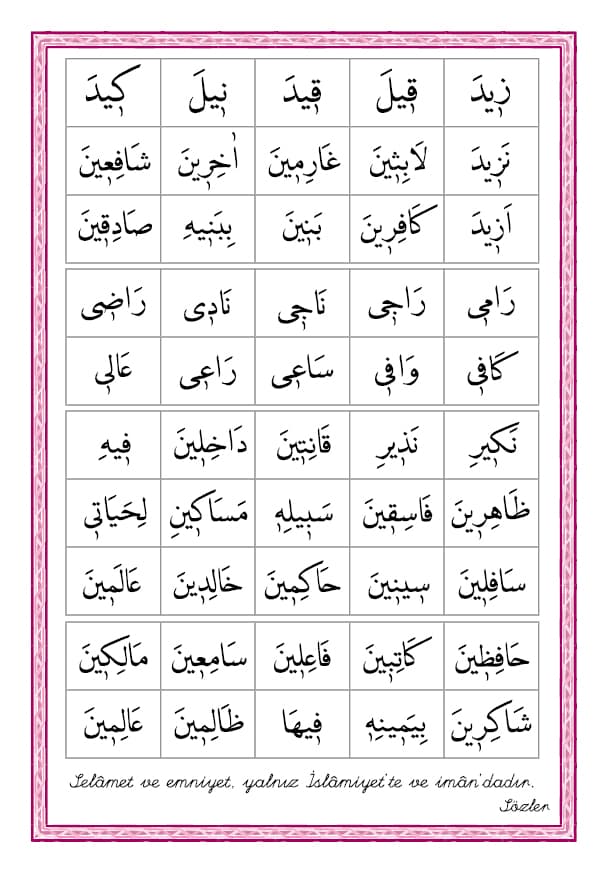 زٖيدَ قٖيلَ قٖيدَ نٖيلَ كٖيدَ
نَزٖيدَ لَابِثٖينَ غَارِمٖينَ اٰخِرٖينَ شَافِعٖينَ
اَزٖيدَ كَافِرٖينَ بَنٖينَ بِبَنٖيهِ صَادِقٖينَ
رَامٖى رَاجٖى نَاجٖى نَادٖى رَاضٖى
كَافٖى وَافٖى سَاعٖى رَاعٖى عَالٖى
نَكٖيرِ نَذٖيرِ قَانِتٖينَ دَاخِلٖينَ فٖيهِ
ظَاهِرٖينَ فَاسِقٖينَ سَبٖيلِهٖ مَسَاكٖينِ لِحَيَاتٖى
سَافِلٖينَ سٖينٖينَ حَاكِمٖينَ خَالِدٖينَ عَالَمٖينَ
حَافِظٖينَ كَاتِبٖينَ فَاعِلٖينَ سَامِعٖينَ مَالِكٖينَ
شَاكِرٖينَ بِيَمٖينِهٖ فٖيهَا ظَالِمٖينَ عَالِمٖينَ
Selâmet ve emniyet, yalnız İslâmiyet'te ve imân'dadır.
Sözler